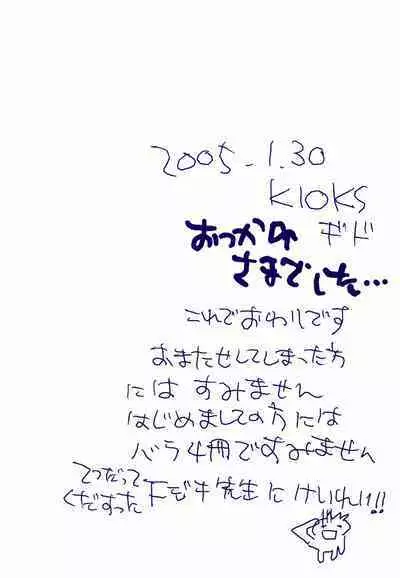 2005.1.30
KIOKS
ギド
おつかれ
さまでした…
これでおわりです
おまたせしてしまった方
にはすみません
はじめましての方には
バラ4冊ですみません
てつだって
くださった下デキ先生にけいれい!!